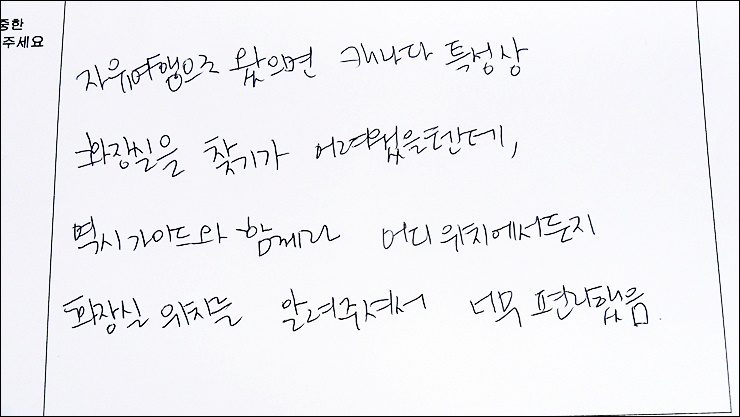 중한
주세요
자유여행으로 왔으면 캐나다 특성상
화장실을 찾기가 어려웠을텐데,
역시 가이드와 함께라 어디 위치에서든지
화장실 위치를 알려주셔서 너무 편리했음.